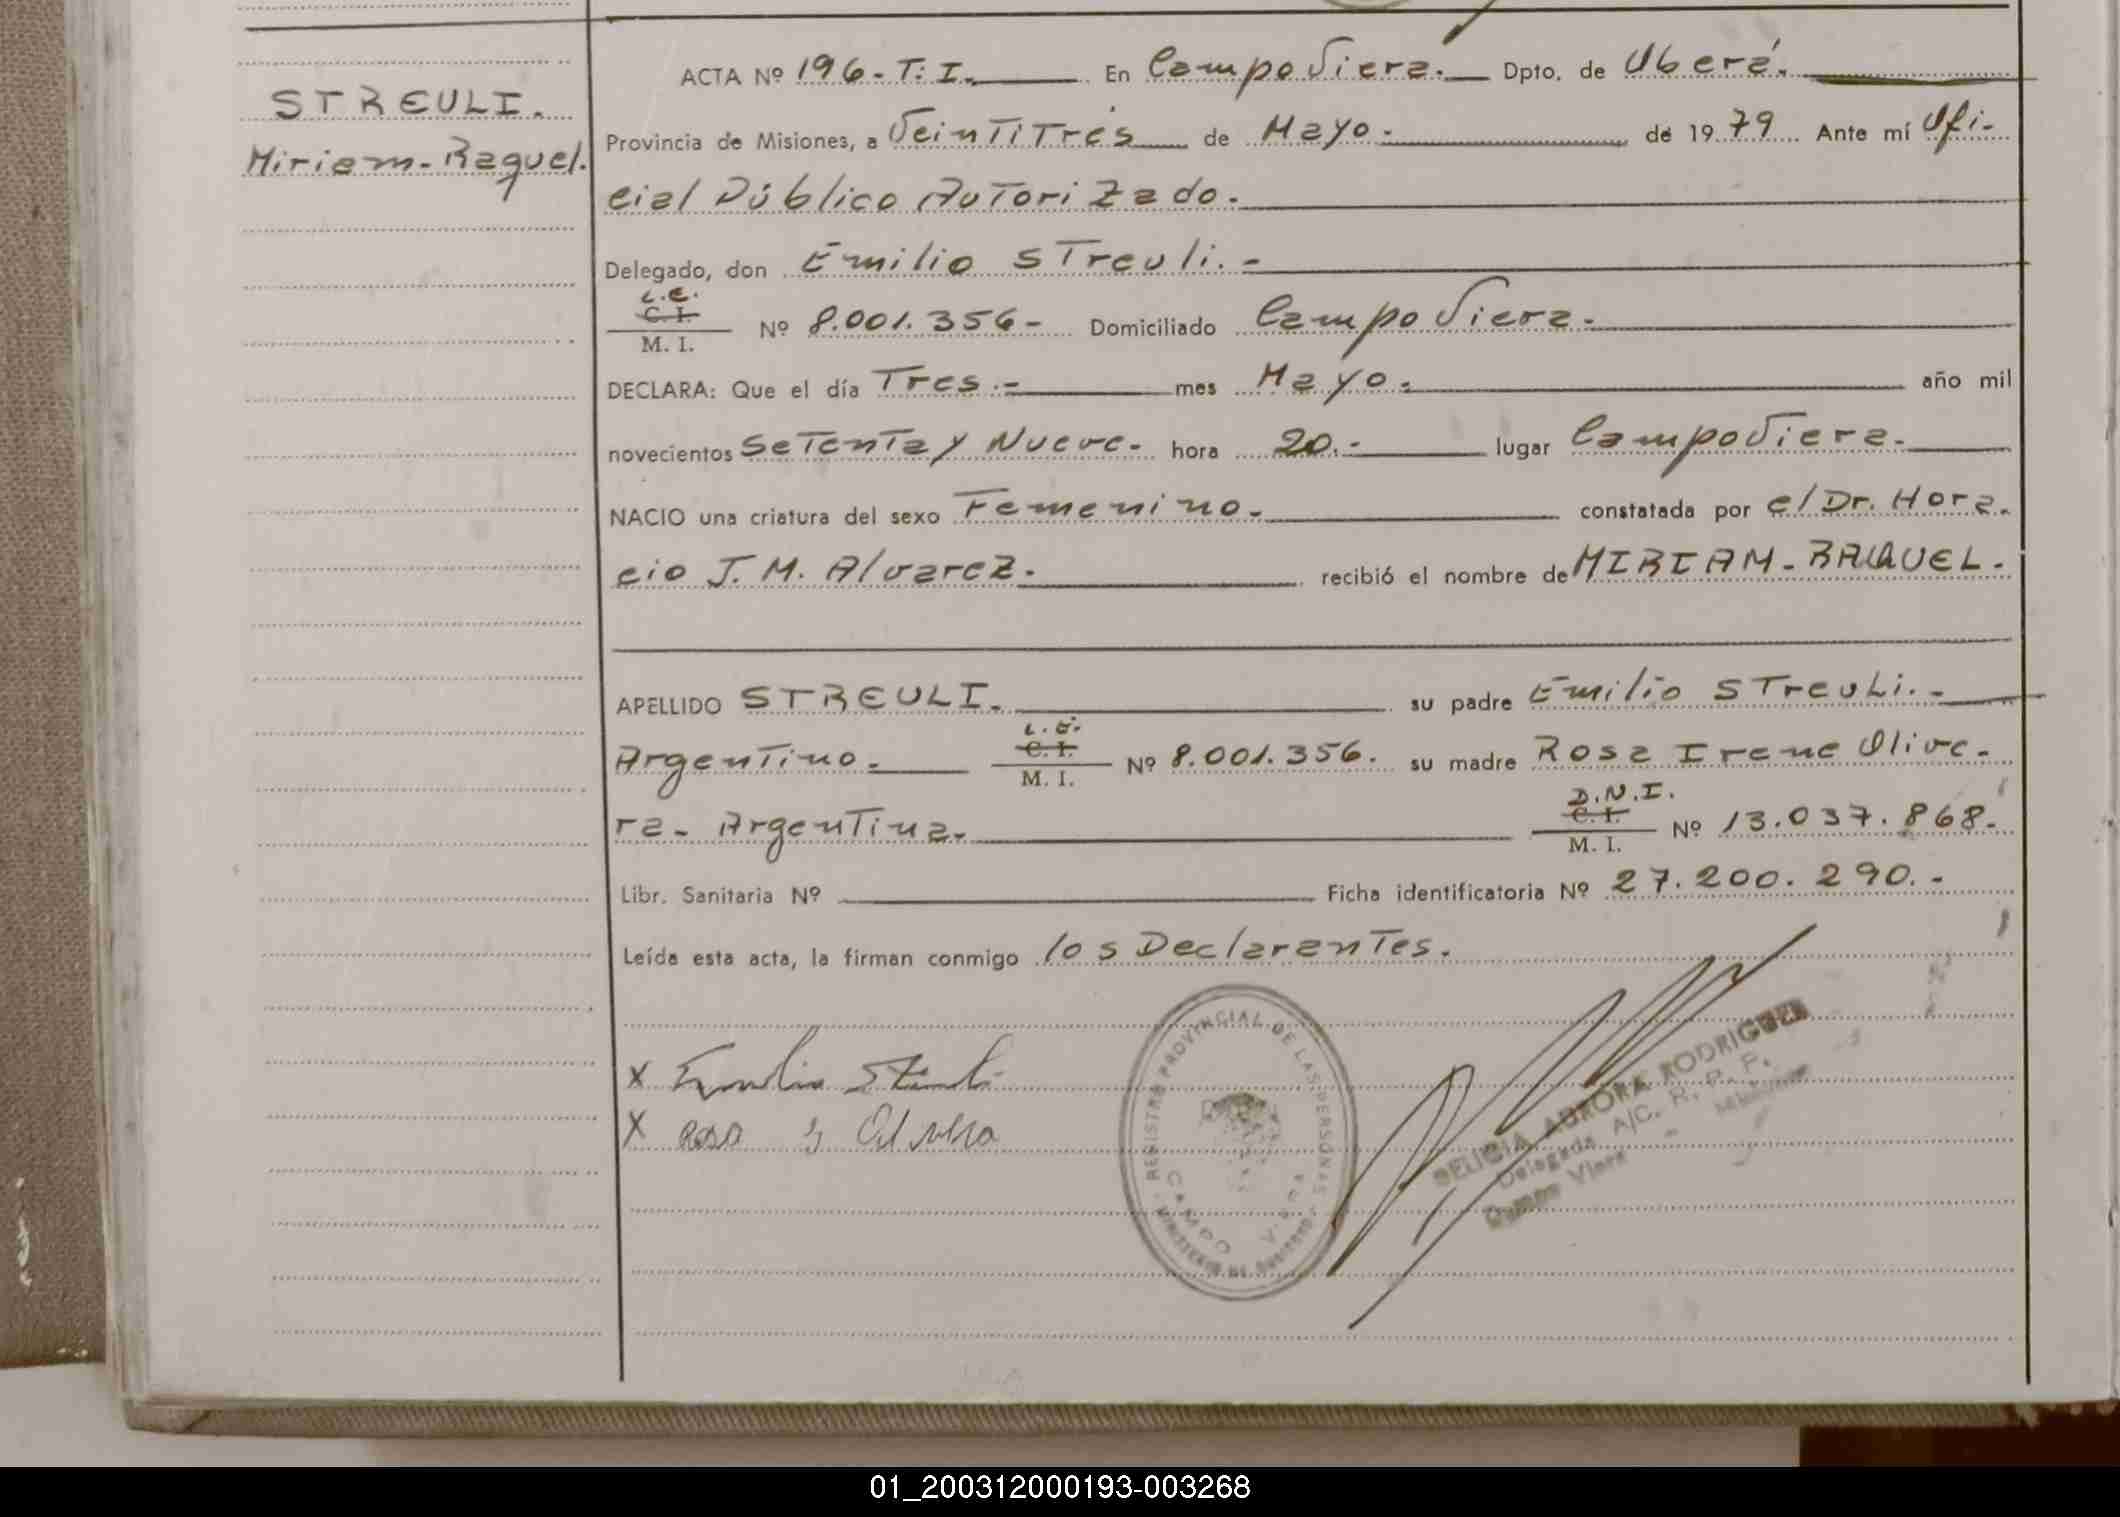 STREULI.
Miriam-Raquel.
ACTA Nº 196-T:I. En Campo Viera. Dpto. de Oberá.
Provincia de Misiones, a Veintitrés de Mayo. de 1979 Ante mí Ofi-
cial Público Autorizado.
Delegado, don Emilio Streuli.-
L.E.
C. I.
M. I.
Nº 8.001.356- Domiciliado Campo Viera.
DECLARA: Que el día Tres.- mes Mayo. año mil
novecientos Setenta y Nueve. hora 20.- lugar Campo Viera.
NACIO una criatura del sexo Femenino. constatada por el Dr. Hora-
cio J. M. Alvarez. recibió el nombre de MIRIAM-RAQUEL.
APELLIDO STREULI. su padre Emilio Streuli.-
L.E.
C. I.
M. I.
Argentino. Nº 8.001.356. su madre Rosa Irene Olive-
D.N.I.
C. I.
M. I.
ra- Argentina. Nº 13.037.868-
Libr. Sanitaria Nº Ficha identificatoria Nº 27.200.290.-
Leída esta acta, la firman conmigo los Declarantes.
X Emilio Streuli
X Rosa I Olivera
REGISTRO PROVINCIAL DE LAS PERSONAS
CAMPO VIERA
MINISTERIO DE GOBIERNO
DELICIA AURORA RODRIGUEZ
Delegada A/C. R. P. P.
Campo Viera - Misiones
01_200312000193-003268